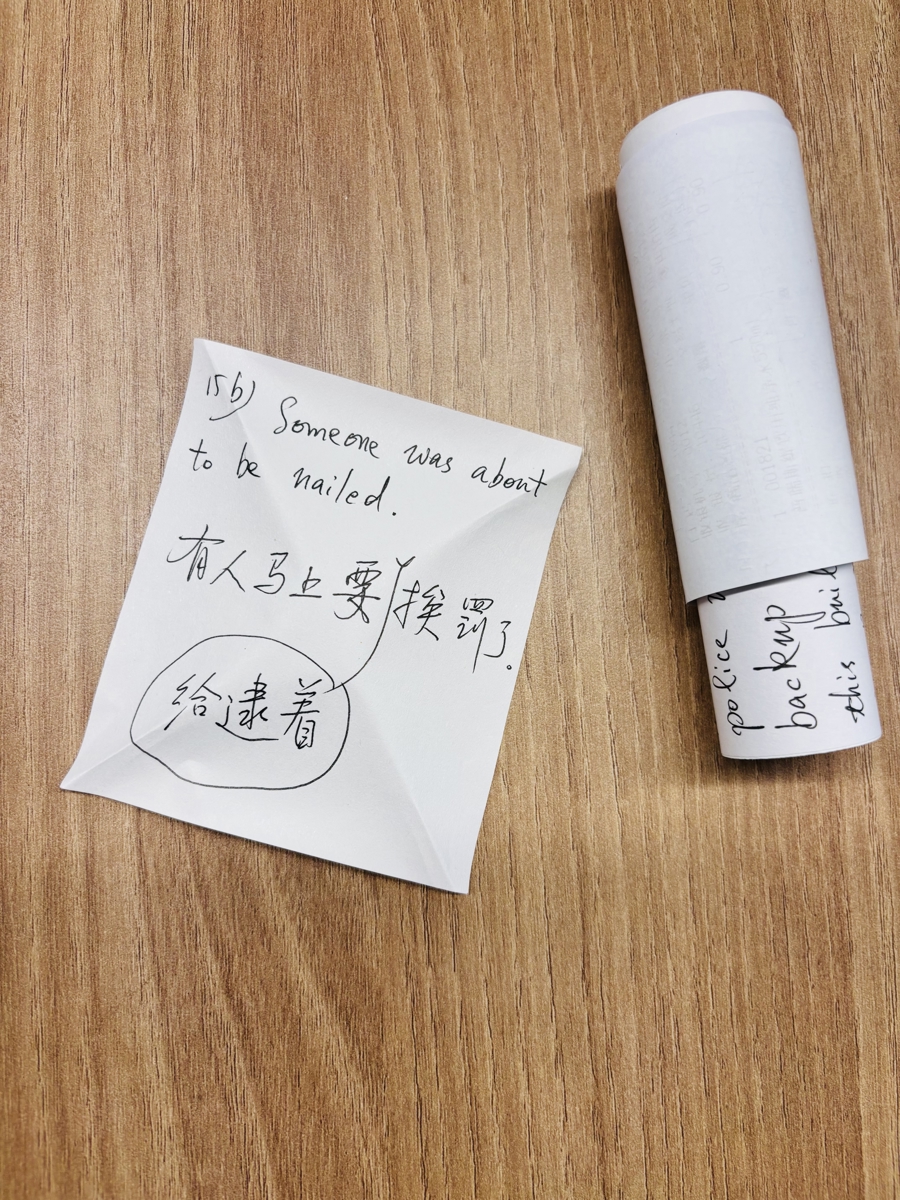 15b) Someone was about
to be nailed.
有人马上要挨罚了.
给逮着
police
backup
this